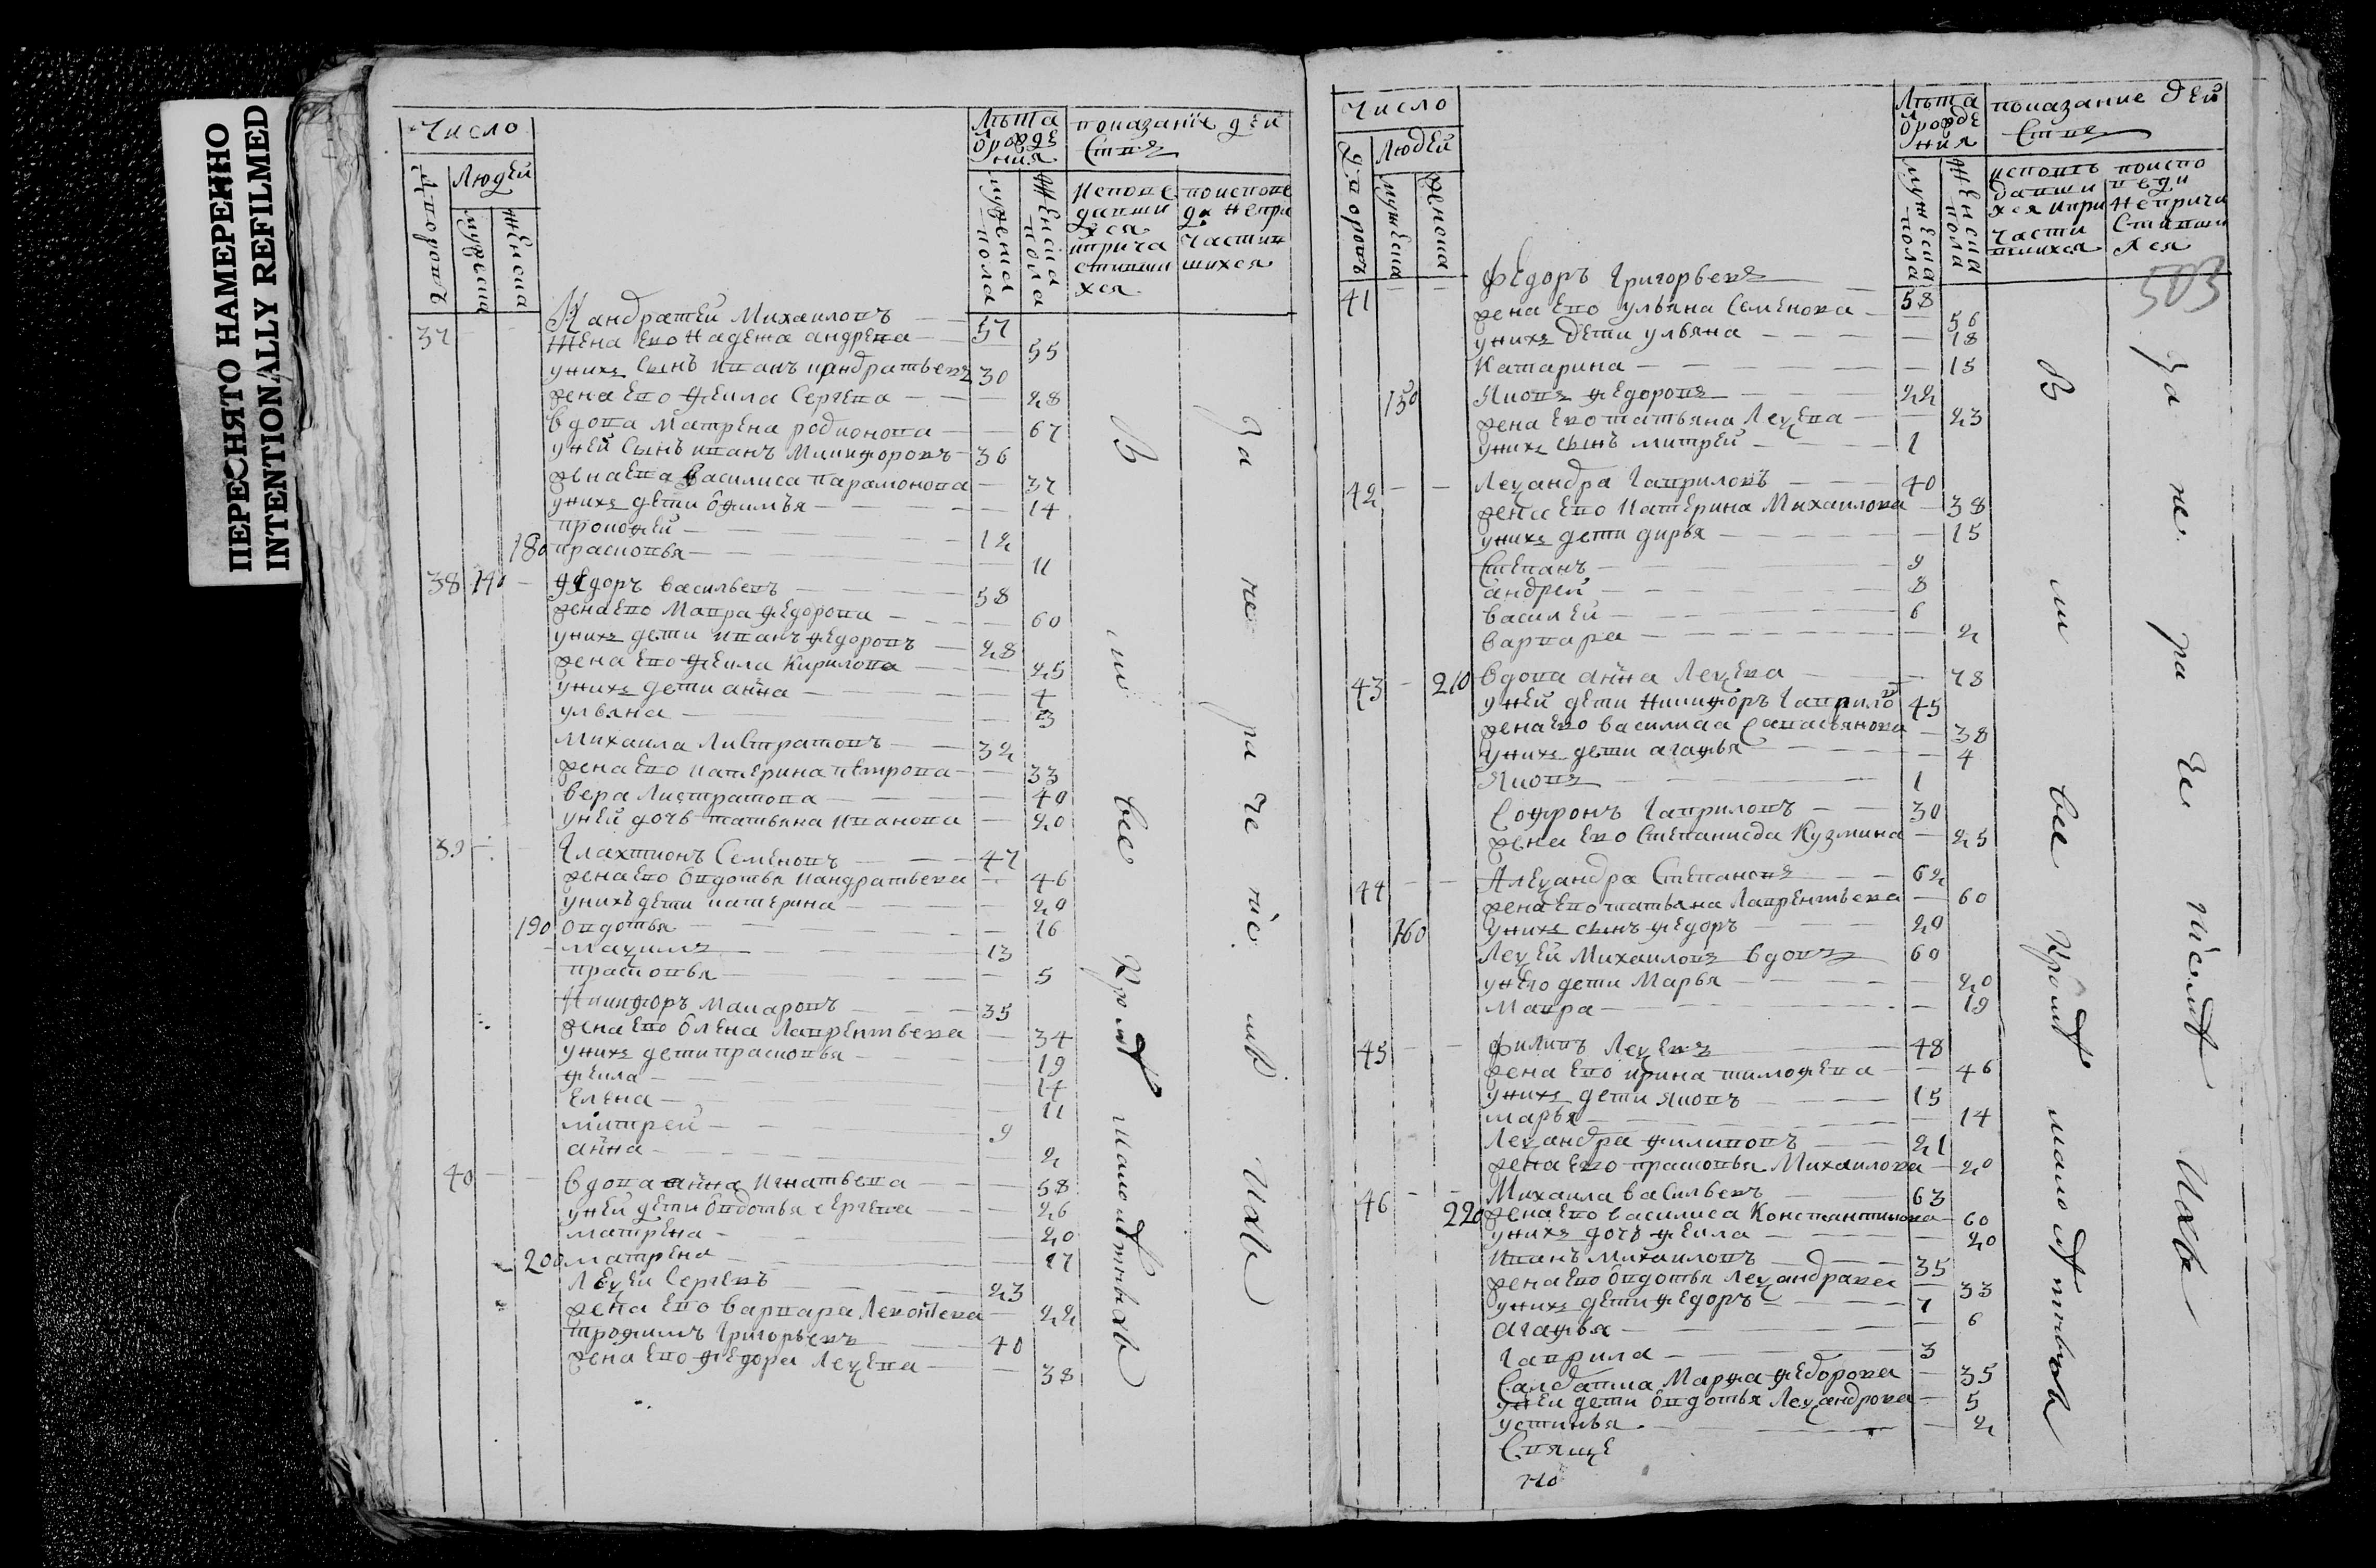 ПЕРЕСНЯТО НАМЕРЕННО
INTENTIONALLY REFILMED
Число
Людей
Дворовъ
мужеска
женска
Лѣта
ѿ рожде
ния
мужеска пола
женска пола
показание дей
ствя
испове
давши
хся
и прича
стивши
хся
по испове
да не при
частив
шихся
37 Кандратей Михаиловъ 57
Жена ево надежа андрева 55
у нихъ сынъ иванъ кандратьевъ 30
жена ево фекла Сергева 28
вдова матрена родионова 67
у ней сынъ иванъ Микифоровъ 36
жена ева василиса парамонова 37
у нихъ дети офимья 14
прокофей 12
180 прасковья 11
38 140 федоръ васильевъ 58
жена ево Мавра федорова 60
у нихъ дети иванъ федоровъ 28
жена ево фекла Кирилова 25
у нихъ дети анна 4
ульяна 3
михаила Листратовъ 32
жена ево катерина петрова 33
вера Листратова 40
у ней дочь татьяна иванова 20
39 Галахтионъ Семеновъ 47
жена ево овдотья кандратьева 46
у нихъ дети катерина 20
190 овдотья 16
мазимъ 13
прасковья 5
Никифоръ макаровъ 35
жена ево олена Лаврентьева 34
у нихъ дети прасковья 19
фекла 14
елена 11
митрей 9
анна 2
40 вдова анна игнатьева 58
у ней дети овдотья сергева 26
матрена 20
200 матрена 17
Лезей Сергевъ 23
жена ево варвара Левонтева 22
трофимъ григорьевъ 40
жена ево федора Лезева 38
Вси все кроме малолѣтныхъ
За нерачениемъ ихъ
Число
Людей
Дворовъ
мужеска
женска
Лѣта
ѿ рожде
ния
мужеска пола
женска пола
показание дей
ствя
исповѣ
давши
хся и при
части
вшихся
по испо
веди
не прича
стивши
хся
503
41 федоръ григорьевъ 58
жена ево ульяна Семенова 56
у нихъ дети ульяна 18
Катарина 15
150 Яковъ федоровъ 22
жена ево татьяна Лезева 23
у нихъ сынъ митрей 1
42 Лезандра гавриловъ 40
жена ево катерина Михаилова 38
у нихъ дети дарья 15
Степанъ 9
андрей 8
василей 6
варвара 2
43 210 вдова анна Лезева 78
у ней дети никифоръ гаврило 45
жена ево василиса савастьянова 38
у нихъ дети агафья 4
Яковъ 1
Софронъ гавриловъ 30
жена ево Степанида Кузмина 25
44 Алезандра Степановъ 62
жена ево татьяна Лаврентьева 60
160 у нихъ сынъ федоръ 20
Лезей Михаиловъ вдовъ 60
у нево дети Марья 20
мавра 19
45 филипъ Лезевъ 48
жена ево ирина тимофева 46
у нихъ дети яковъ 15
марья 14
Лезандра филиповъ 21
жена ево прасковья Михаилова 20
46 Михаила васильевъ 63
220 жена ево василиса Константинова 60
у нихъ дочь фекла 20
иванъ михаиловъ 35
жена ево овдотья Лезандрова 33
у нихъ дети федоръ 7
агафья 6
гаврила 3
Салдатка Марфа федорова 35
у ней дети овдотья Лезандрова 5
устинья 2
Вси все кроме малолѣтныхъ
За нерачениемъ ихъ
Свяще
но